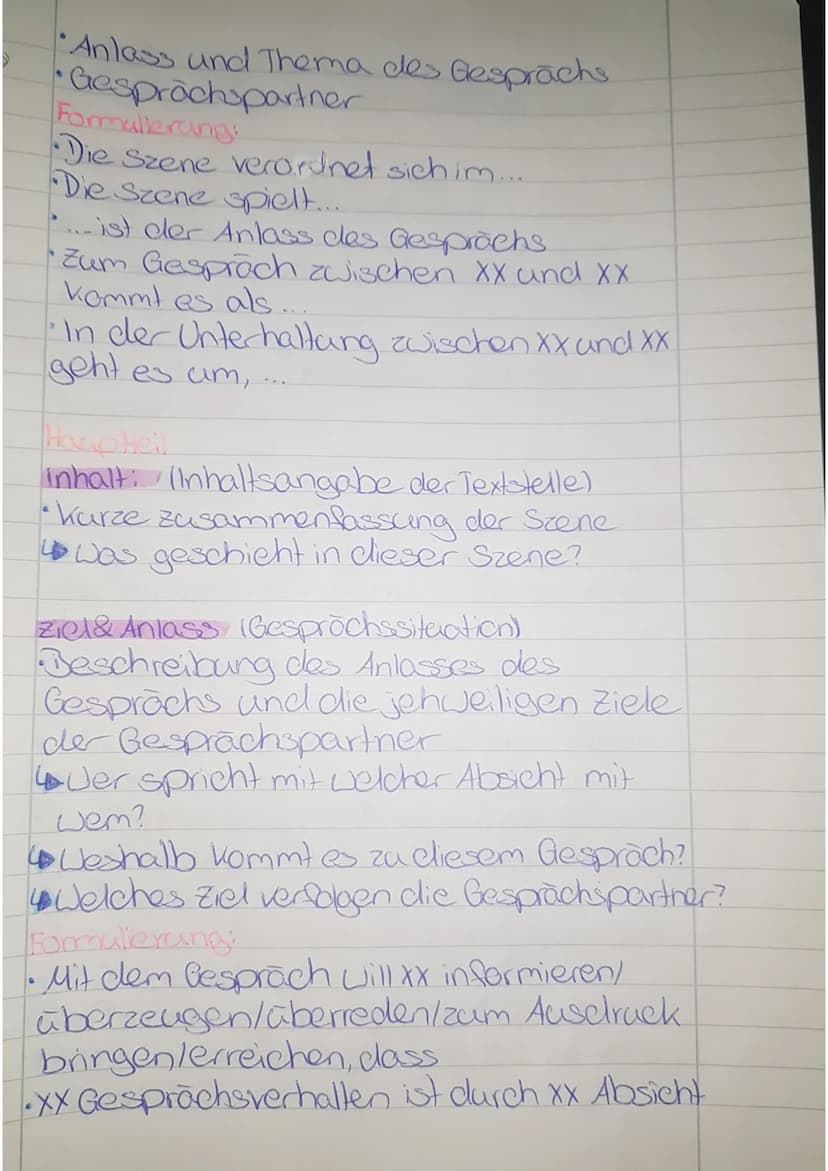 · Anlass und Thema des Gesprächs
· Gesprächspartner
Formulierung:
· Die Szene verordnet sich im...
· Die Szene spielt...
· ... ist der Anlass des Gesprächs
· Zum Gespräch zwischen XX und XX
kommt es als...
· In der Unterhaltung zwischen XX und XX
geht es um, ...
Hauptteil
inhalt: (Inhaltsangabe der Textstelle)
· Kurze zusammenfassung der Szene
↳ Was geschieht in dieser Szene?
Ziel & Anlass (Gesprächssituation)
· Beschreibung des Anlasses des
Gesprächs und die jehweiligen Ziele
der Gesprächspartner
↳ Wer spricht mit welcher Absicht mit
wem?
↳ Weshalb kommt es zu diesem Gespräch?
↳ Welches Ziel verfolgen die Gesprächspartner?
Formulierung:
· Mit dem Gespräch will xx informieren/
überzeugen/überreden/zum Ausdruck
bringen/erreichen, dass
· XX Gesprächsverhalten ist durch xx Absicht